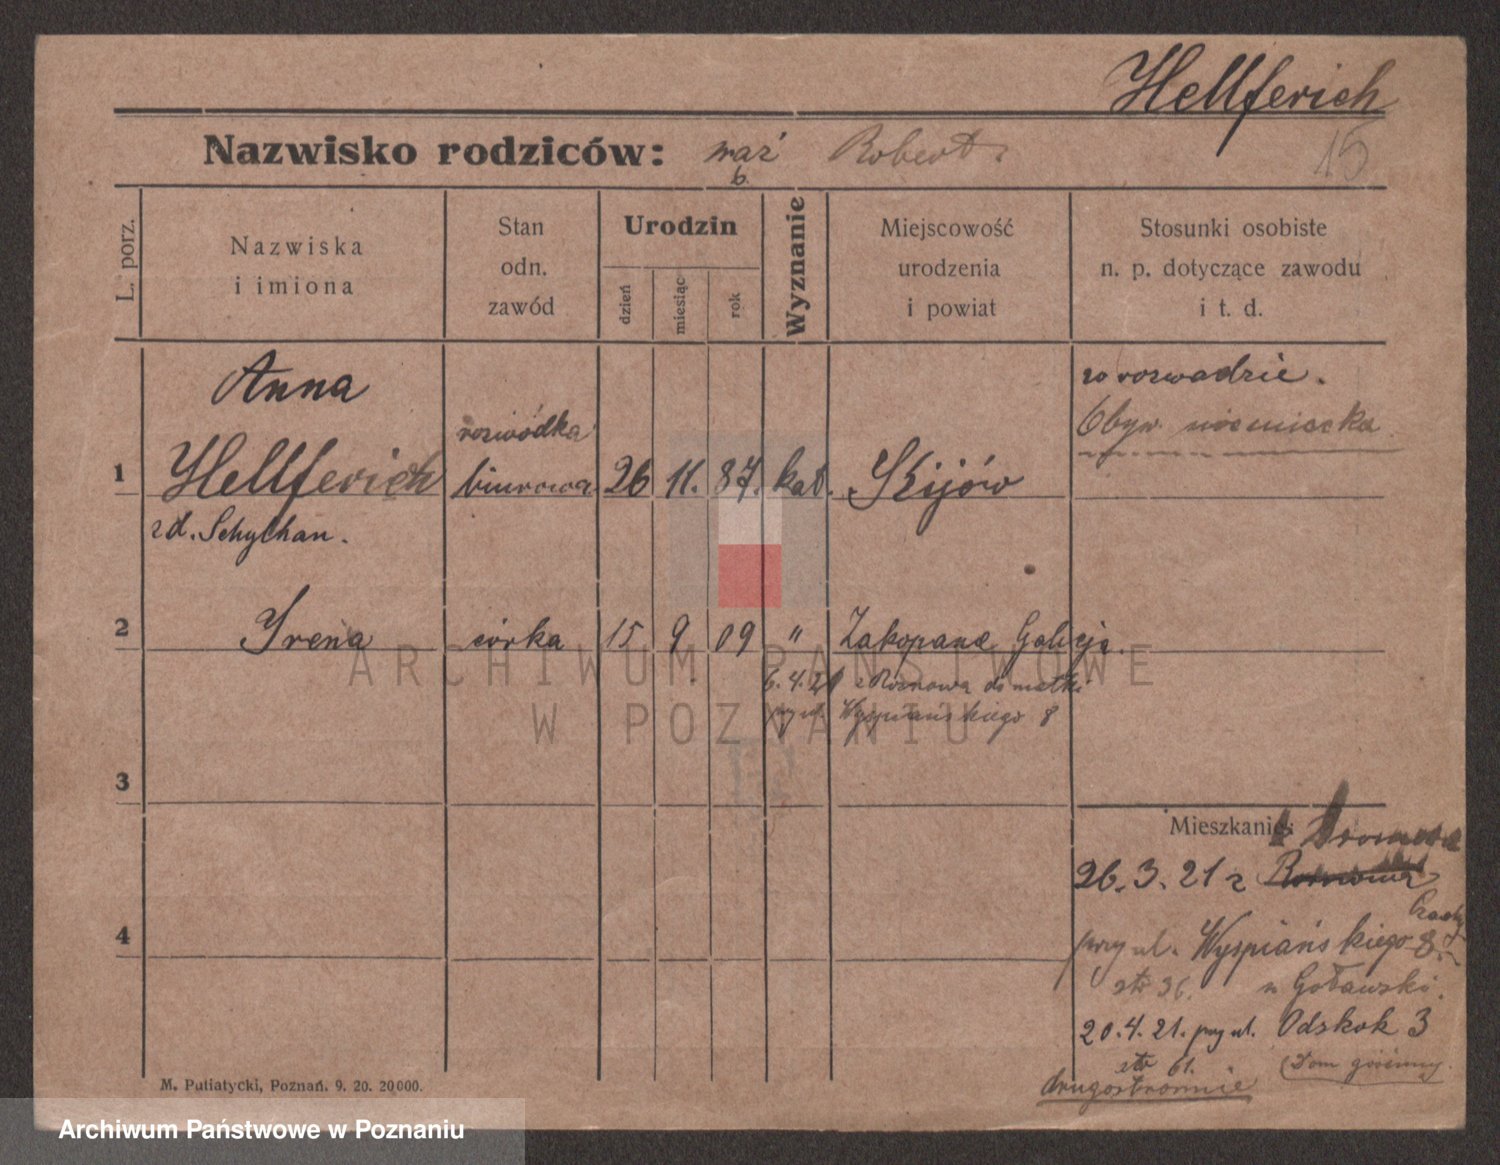 Hellferich
15
Nazwisko rodziców: mąż Robert
b.
L. porz.
Nazwiska
i imiona
Stan
odn.
zawód
Urodzin
dzień
miesiąc
rok
Wyznanie
Miejscowość
urodzenia
i powiat
Stosunki osobiste
n. p. dotyczące zawodu
i t. d.
Anna
w rozwadzie.
Obyw. niemiecka
rozwódka
1 Hellferich biurowa 26 11. 87. kat. Kijów
zd. Schylhan.
2 Irena córka 15 9 09 " Zakopane Galicja.
6.4.21 z do matki
przy ul. Wyspiańskiego 8
3
Mieszkanie:
26.3.21 z
przy ul. Wyspiańskiego 8
4
str 36. u Goławski.
20.4.21. przy ul. Odskok 3
str 61. (Dom gościnny
drugostronnie
M. Putiatycki, Poznań. 9. 20. 20000.
ARCHIWUM PAŃSTWOWE
W POZNANIU
Archiwum Państwowe w Poznaniu